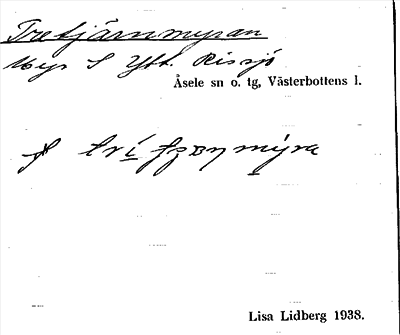 Tretjärnmyran
Myr S Ytt. Rissjö
Åsele sn o. tg, Västerbottens l.
Lisa Lidberg 1938.